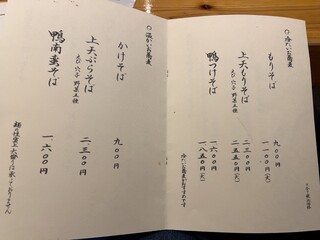 ○冷たいお蕎麦
もりそば 九〇〇円
一一〇〇円(大)
上天もりそば 二三〇〇円
えび 穴子 野菜五種 二五五〇円(大)
鴨つけそば 一六〇〇円
一八五〇円(大)
○温かいお蕎麦
かけそば 九〇〇円
上天ぷらそば 二、三〇〇円
えび 穴子 野菜五種
鴨南蛮そば 一、六〇〇円
麺の性質上大盛りは承っておりません